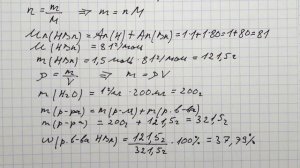 n = m/M => m = nM
Mr(HBr) = Ar(H) + Ar(Br) = 1·1 + 1·80 = 1 + 80 = 81
M(HBr) = 81 г/моль
m(HBr) = 1,5 моль · 81 г/моль = 121,5 г
ρ = m/V => m = ρV
m(H2O) = 1 г/мл · 200 мл = 200 г
m(р-ра) = m(р-ля) + m(р.в-ва)
m(р-ра) = 200 г + 121,5 г = 321,5 г
ω(р.в-ва HBr) = 121,5 г/321,5 г · 100% = 37,79%